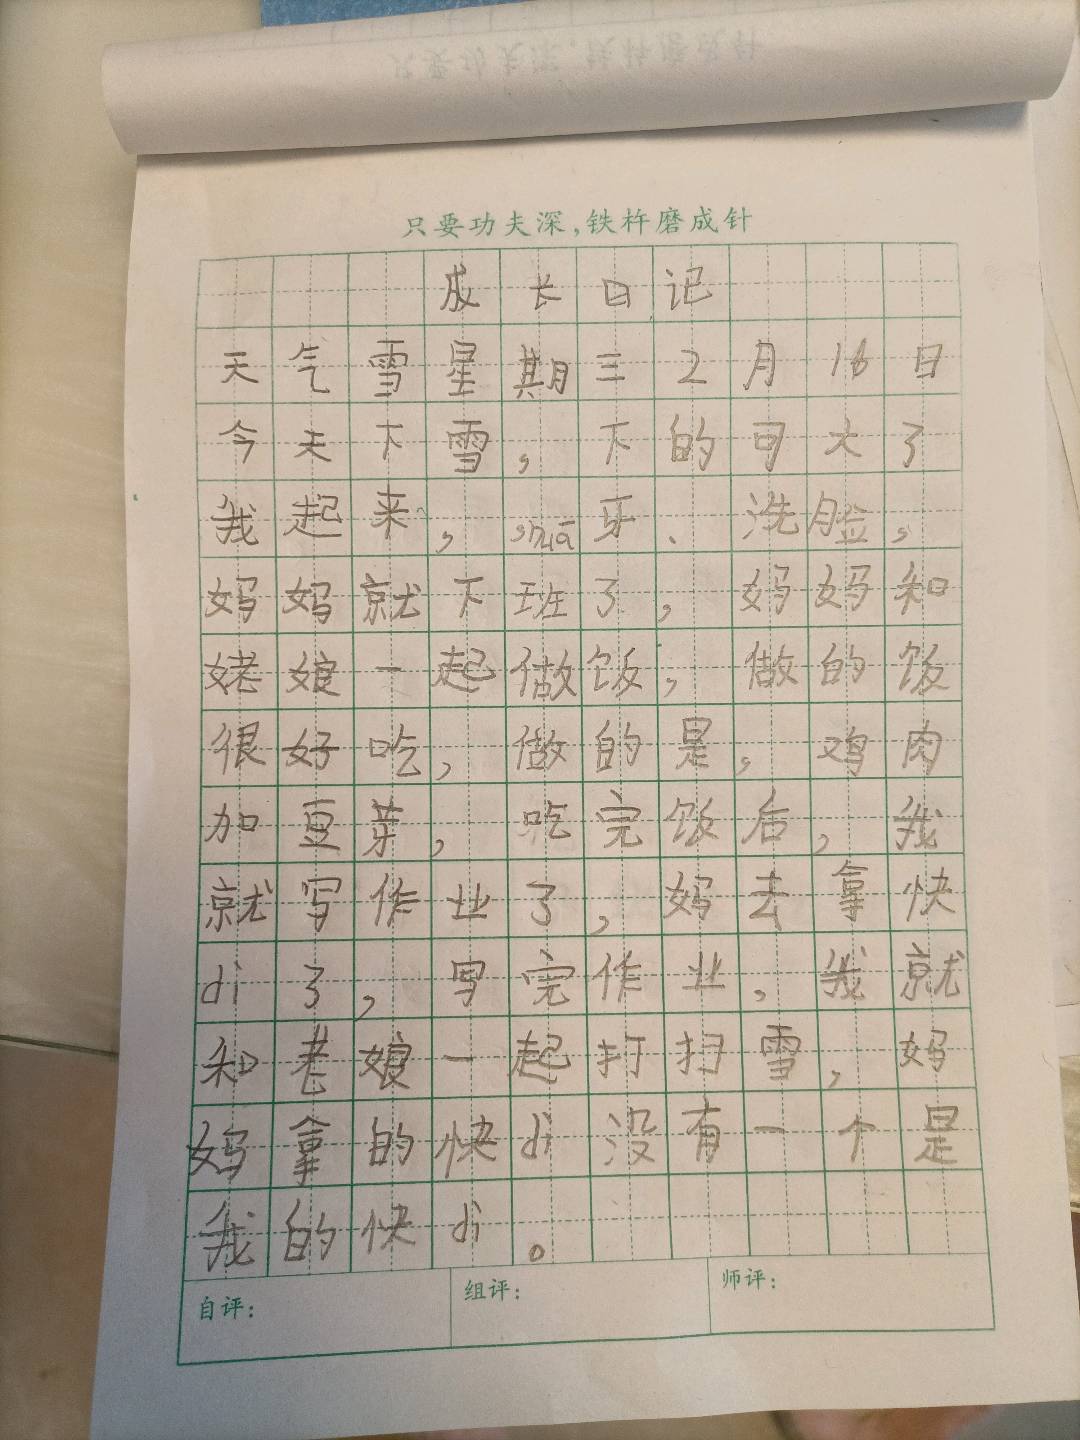 只要功夫深,铁杵磨成针
成长日记
天气雪星期三2月16日
今天下雪,下的可大了
我起来,shuā牙、洗脸,
妈妈就下班了,妈妈和
姥娘一起做饭,做的饭
很好吃,做的是,鸡肉
加豆芽,吃完饭后,我
就写作业了,妈去拿快
di了,写完作业,我就
和老娘一起打扫雪,妈
妈拿的快di没有一个是
我的快di。
自评: 组评: 师评: